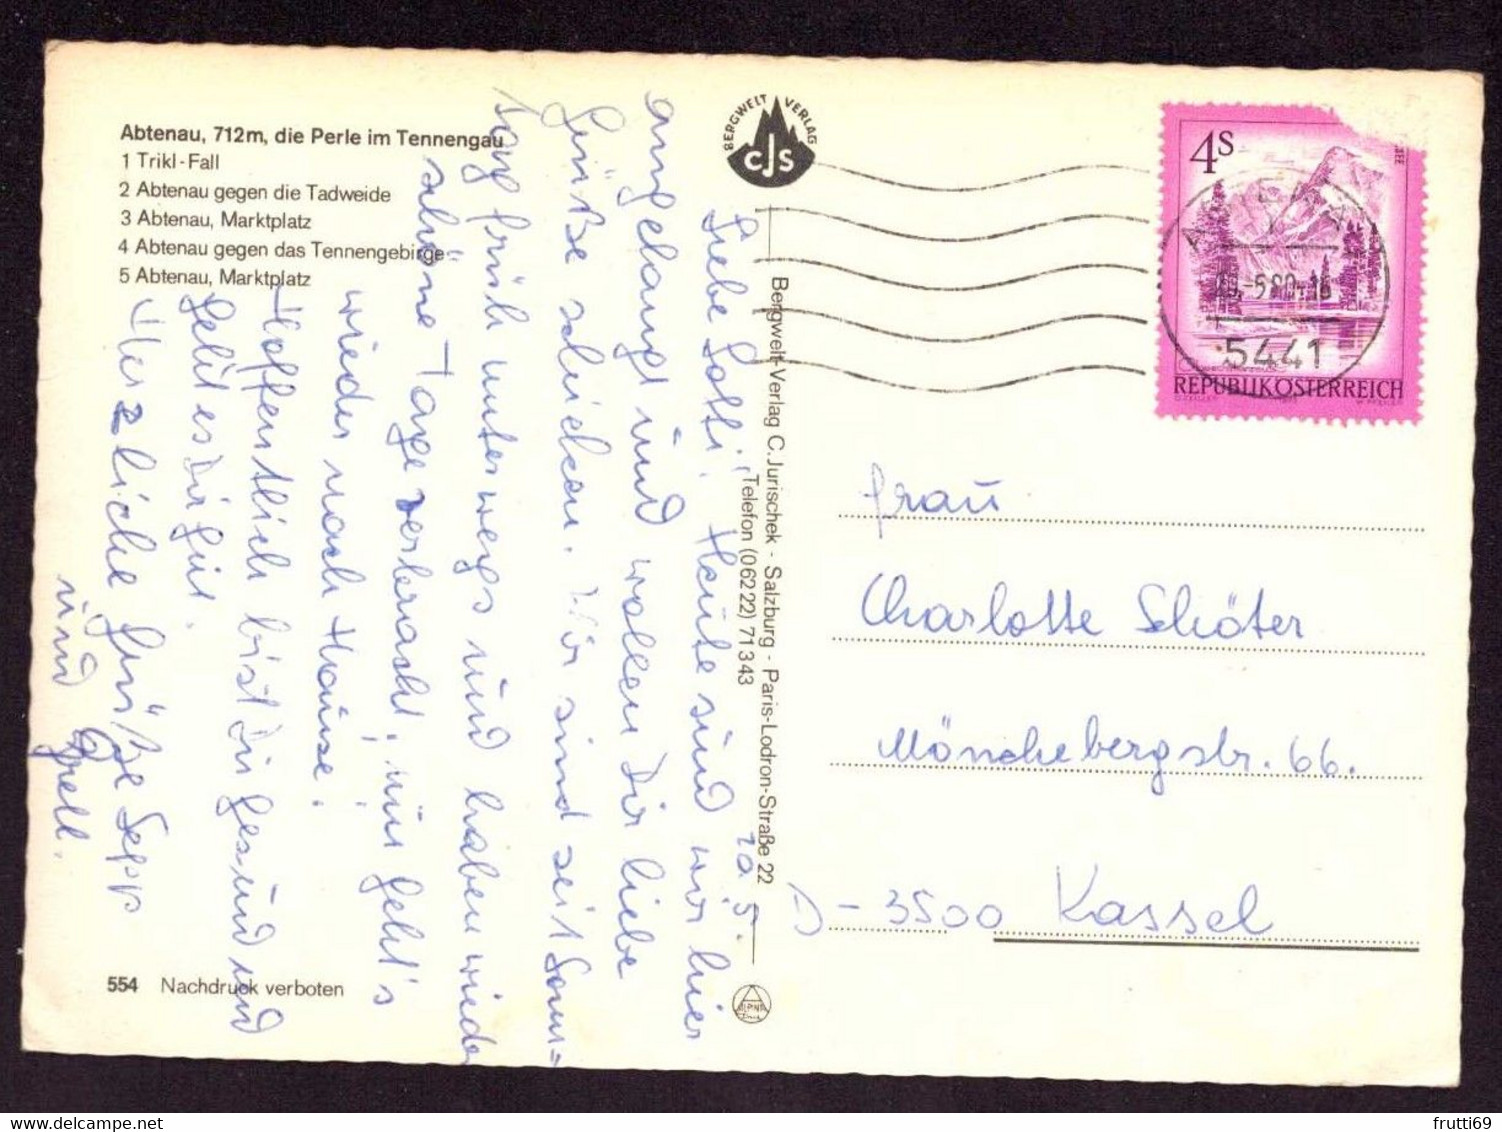 Abtenau, 712m, die Perle im Tennengau
1 Trikl-Fall
2 Abtenau gegen die Tadweide
3 Abtenau, Marktplatz
4 Abtenau gegen das Tennengebirge
5 Abtenau, Marktplatz
BERGWELT VERLAG
CJS
4S
REPUBLIK ÖSTERREICH
-5.80-16
5441
Bergwelt-Verlag C.Jurischek - Salzburg - Paris-Lodron-Straße 22
Telefon (06222) 71343
10.5.
Liebe Lotti! Heute sind wir hier
angelangt und wollen Dir liebe
Grüße schicken. Wir sind seit Sonn=
tag früh unterwegs und haben wieder
schöne Tage verbracht, nun geht's
wieder nach Hause.
Hoffentlich bist Du gesund und
geht es Dir gut.
Herzliche Grüße Sepp
und Gretl.
Frau
Charlotte Schöter
Mönchebergstr. 66.
D-3500 Kassel
554 Nachdruck verboten
frutti69